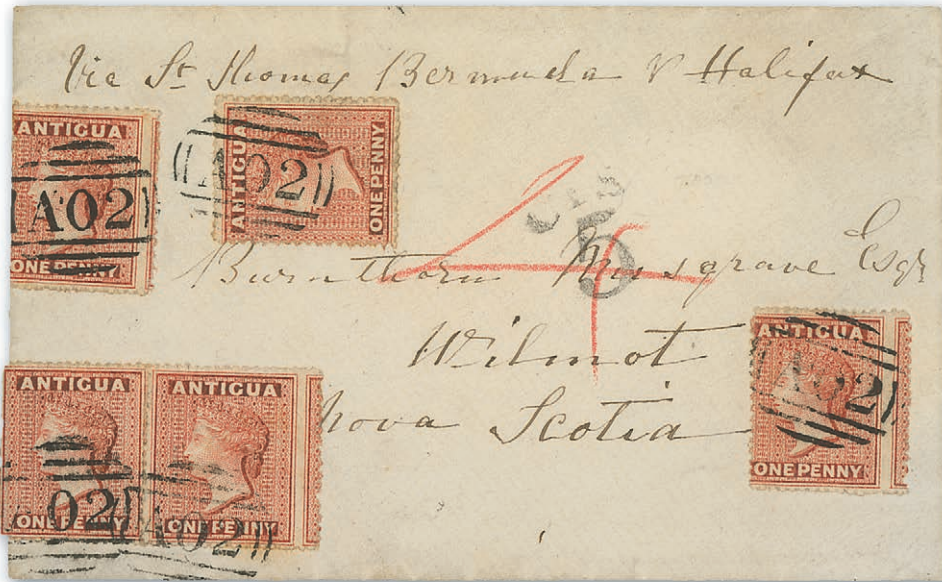 Via St Thomas Bermuda & Halifax
ANTIGUA
A02
ONE PENNY
ANTIGUA
A02
ONE PENNY
4
5
Burnthorn Musgrave Esqr
Wilmot
Nova Scotia
ANTIGUA
A02
ONE PENNY
ANTIGUA
02
ONE PENNY
ANTIGUA
A02
ONE PENNY